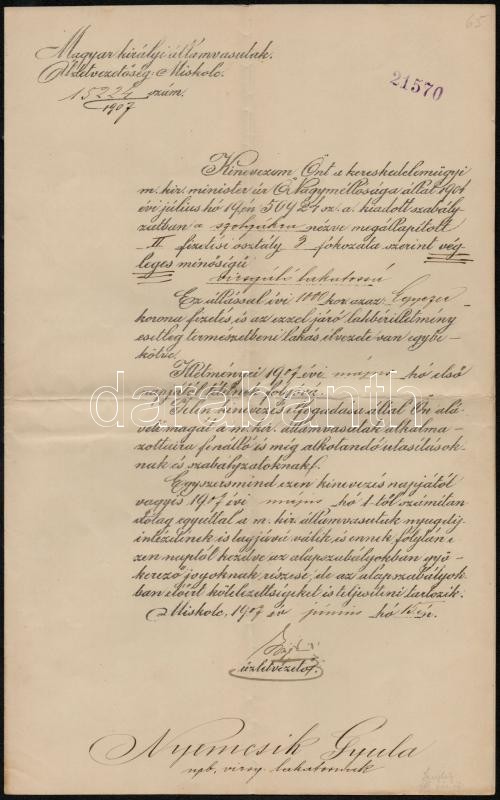 65
Magyar királyi államvasutak.
Üzletvezetőség Miskolc.
15224 szám.
1907
21570
Kinevezem Önt a kereskedelemügyi
m. kir. minister úr Ő Nagyméltósága által 1901
évi július hó 19én 50424 sz. a. kiadott szabály-
zatban a szolgákra nézve megállapított
II fizetési osztály 3 fokozata szerint vég-
leges minőségű
vizsgáló lakatossá
Ez állással évi 1000 kor. azaz Egyezer
korona fizetés, is az ezzel járó lakbérilletmény
esetleg természetbeni lakás élvezete van egybe-
kötve.
Illetményei 1907 évi május hó első
napjától tétetnek folyóvá.
Jelen kinevezés elfogadása által Ön alá-
veti magát a m. kir. államvasutak alkalma-
zottaira fenálló is még alkotandó utasítások-
nak is szabályzatoknak.
Egyszersmind ezen kinevezés napjától
vagyis 1907 évi május hó 1-től számítan-
dólag egyúttal a m. kir. államvasutak nyugdíj-
intézetének is tagjává válik is ennek folytán e
zen naptól kezdve az alapszabályokban gyö-
kerező jogoknak részese, de az alapszabályok-
ban előírt kötelezettségeket is teljesíteni tartozik.
Miskolc, 1907 év június hó
üzletvezető.
Nyemcsik Gyula
npb. vizsg. lakatosnak
darabanth